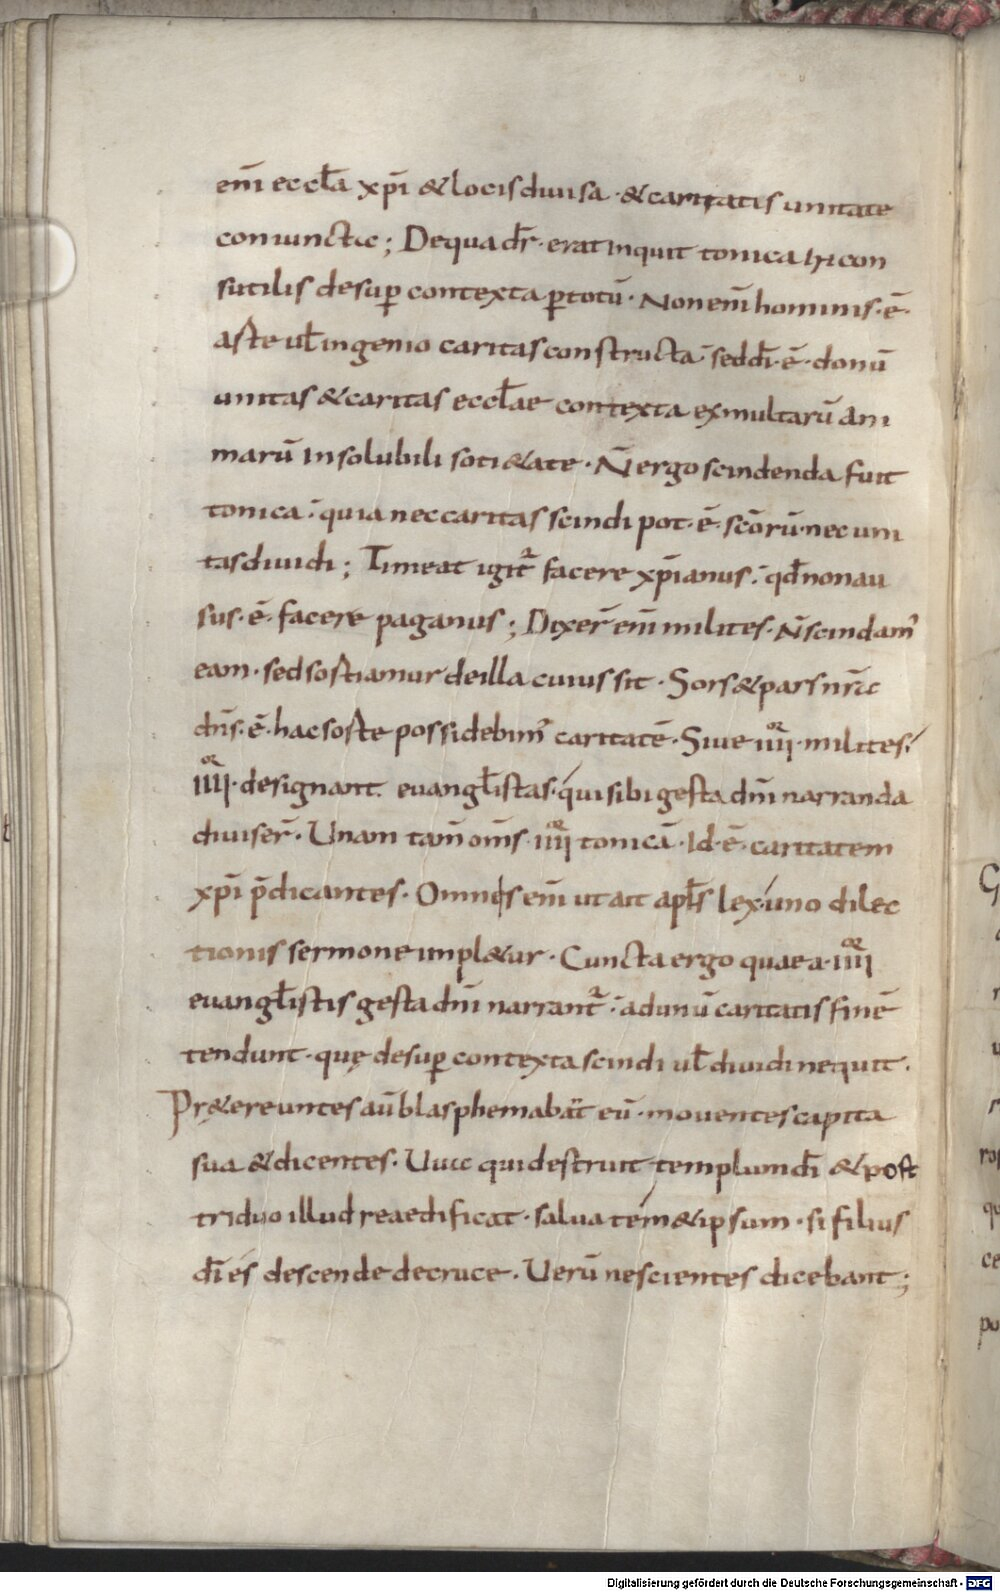 em̄ eccl̄a xp̄i & locis diuisa · & caritatis unitate
coniunctic ; De qua dr̄ · erat inquit tonica incon
sutilis desup̱ contexta p̱ totū · Non em̄ hominis · ē ·
aste ul̄ ingenio caritas constructa · sed dī · ē · donū
unitas & caritas eccl̄ae contexta ex multarū ani
marū insolubili soti&ate · N̄ ergo scindenda fuit
tonica · quia nec caritas scindi pot · ē · scōrū · nec uni
tas diuidi ; Timeat igit̄ facere xp̄ianus · qd̄ non au
sus · ē · facere paganus ; Dixer̄ em̄ milites · N̄ scindam'
eam · sed sostiamur de illa cuius sit · Sors & pars nr̄ic
dn̄s · ē · hac soste possidebim' caritatē · Siue iiii^or · milites ·
iiii^or · designant euangl̄istas · qui sibi gesta dn̄i narranda
diuiser̄ · Unam tam̄ om̄s · iiii^or tonicā · Id · ē · caritatem
xp̄i p̄dicantes · Omnis em̄ ut ait apl̄s lex · uno dilec
tionis sermone impl&ur · Cuncta ergo quae a · iiii^or
euangl̄istis gesta dn̄i narrant̄ · ad unū caritatis finē
tendunt · quę desup̱ contexta scindi ul̄ diuidi nequit ·
Pr&ereuntes aū blasphemabāt eū · mouentes capita
sua & dicentes · Uuic qui destruit templum dī & post
triduo illud reaedificat · salua tem & ipsum · si filius
dī es descende de cruce · Uerū nescientes dicebant ;
Digitalisierung gefördert durch die Deutsche Forschungsgemeinschaft - DFG